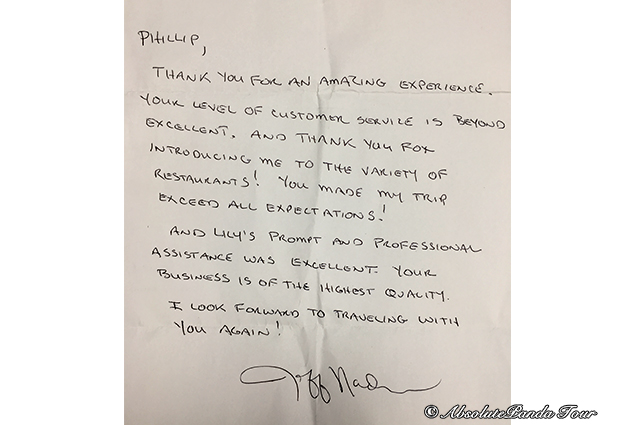 PHILLIP,
THANK YOU FOR AN AMAZING EXPERIENCE.
YOUR LEVEL OF CUSTOMER SERVICE IS BEYOND
EXCELLENT. AND THANK YOU FOX
INTRODUCING ME TO THE VARIETY OF
RESTAURANTS! YOU MADE MY TRIP
EXCEED ALL EXPECTATIONS!
AND LILY'S PROMPT AND PROFESSIONAL
ASSISTANCE WAS EXCELLENT. YOUR
BUSINESS IS OF THE HIGHEST QUALITY.
I LOOK FORWARD TO TRAVELING WITH
YOU AGAIN!
Jeff
© AbsolutePanda Tour